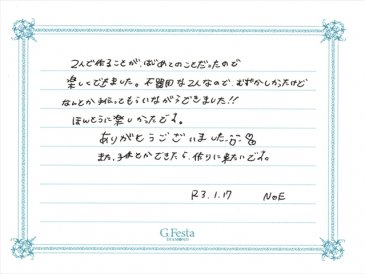 2人で作ることが、はじめてのことだったので
楽しくできました。不器用な2人なので、むずかしかったけど
なんとか手伝ってもらいながらできました!!
ほんとうに楽しかったです。
ありがとうございました
また、子供とかできたら、作りに来たいです。
R3.1.17 NOE
G.Festa
DIAMOND